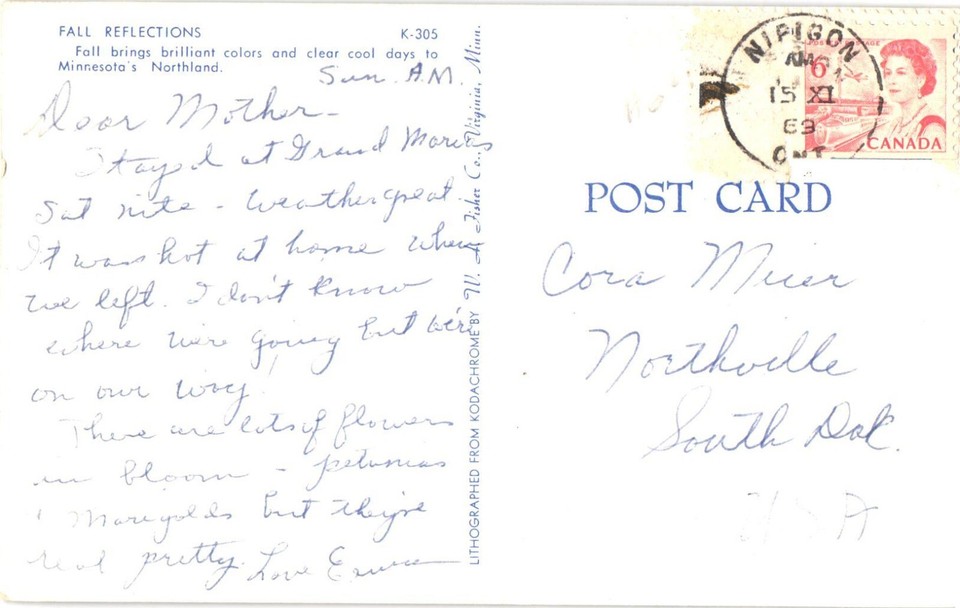 FALL REFLECTIONS K-305
Fall brings brilliant colors and clear cool days to
Minnesota's Northland.
Sun. A.M.
Dear Mother-
Stayed at Grand Marais
Sat nite - Weather great.
It was hot at home when
we left. I don't know
where we're going but we're
on our way!
There are lots of flowers
in bloom - petunias
Marigolds but they're
real pretty. Love
LITHOGRAPHED FROM KODACHROME BY W. A. Fisher Co., Virginia, Minn.
NIPIGON
AM
15 XI
69
ONT
POSTES POSTAGE
6
CANADA
POST CARD
Cora
Northville
South Dak.
USA